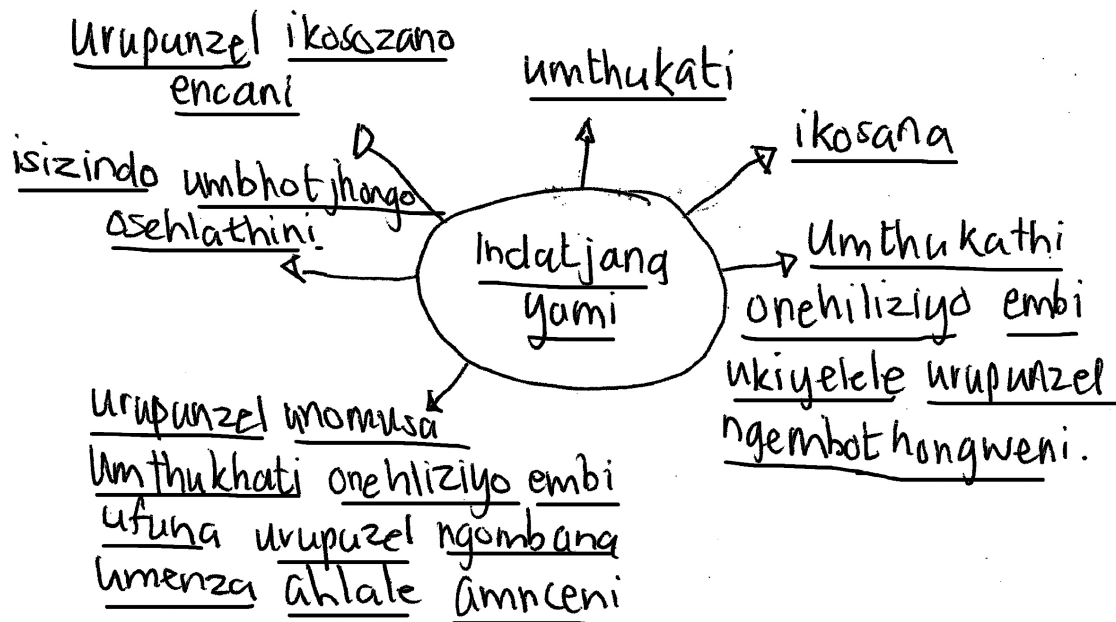 urupunzel ikosozano
encani
umthukati
ikosana
isizindo umbhotjhongo
osehlathini.
Indatjana
yami
Umthukathi
onehiliziyo embi
ukiyelele urupunzel
ngembothongweni.
urupunzel unomusa
umthukhati onehliziyo embi
ufuna urupuzel ngombana
umenza ahlale amnceni